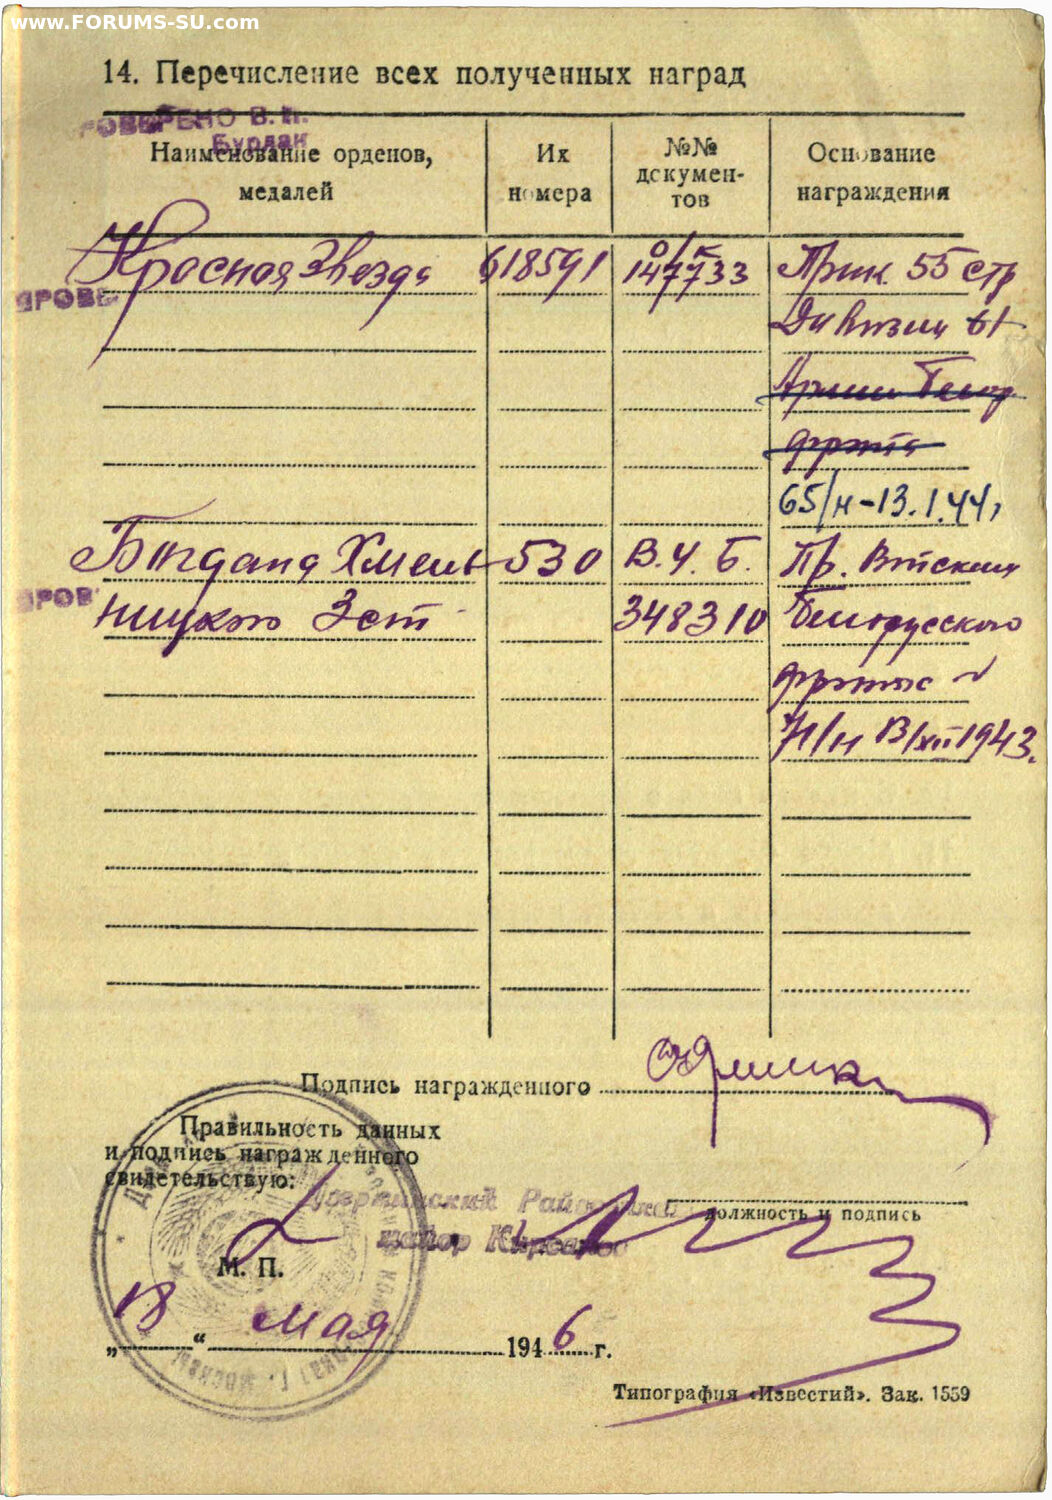 www.FORUMS-SU.com
14. Перечисление всех полученных наград
ПРОВЕРЕНО В. П.
Бурлак
Наименование орденов, медалей
Их номера
№№ докумен-тов
Основание награждения
Красная Звезда 618591 о/к 147733 Прик. 55 стр
ПРОВЕ
Дивизии 61
Армии Белор
фронта
65/н-13.1.44г
Богдана Хмель- 530 В.У.Б. Пр. Войскам
ПРОВ
ницкого 3 ст 348310 Белорусского
фронта
№
71/н 13/XII 1943.
Подпись награжденного
Правильность данных
и подпись награжденного
свидетельствую:
Дзержинский Райвоенком
майор
должность и подпись
М. П.
„18“ мая 1946 г.
Типография «Известий». Зак. 1559